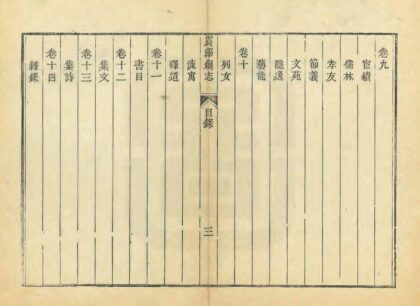 卷九
宦績
儒林
孝友
節義
文苑
隱逸
藝能
卷十
列女
震澤縣志
目錄
三
流寓
釋道
卷十一
書目
卷十二
集文
卷十三
集詩
卷十四
雜錄